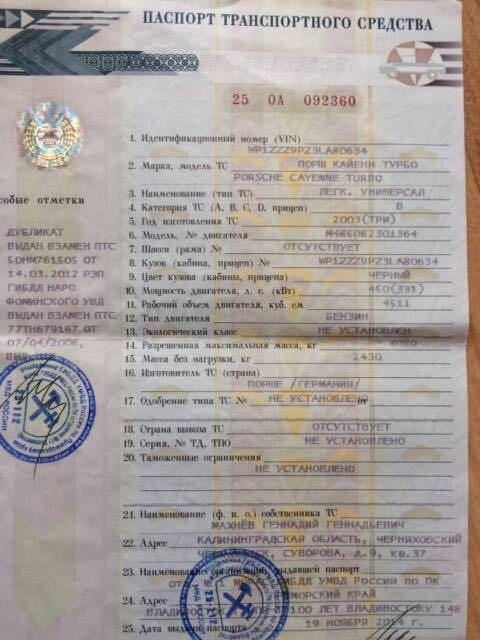 ПАСПОРТ ТРАНСПОРТНОГО СРЕДСТВА
25 ОА 092360
1. Идентификационный номер (VIN) WP1ZZZ9PZ3LA80634
2. Марка, модель ТС ПОРШ КАЙЕНН ТУРБО
PORSCHE CAYENNE TURBO
3. Наименование (тип ТС) ЛЕГК. УНИВЕРСАЛ
4. Категория ТС (A, B, C, D, прицеп) B
5. Год изготовления ТС 2003(ТРИ)
6. Модель, № двигателя M485082301364
7. Шасси (рама) № ОТСУТСТВУЕТ
8. Кузов (кабина, прицеп) № WP1ZZZ9PZ3LA80634
9. Цвет кузова (кабины, прицепа) ЧЕРНЫЙ
10. Мощность двигателя, л. с. (кВт) 450(331)
11. Рабочий объем двигателя, куб. см 4511
12. Тип двигателя БЕНЗИН
13. Экологический класс НЕ УСТАНОВЛЕН
14. Разрешенная максимальная масса, кг 3080
15. Масса без нагрузки, кг 2430
16. Изготовитель ТС (страна)
ПОРШЕ /ГЕРМАНИЯ/
17. Одобрение типа ТС № НЕ УСТАНОВЛЕНО
18. Страна вывоза ТС ОТСУТСТВУЕТ
19. Серия, № ТД, ТПО НЕ УСТАНОВЛЕНО
20. Таможенные ограничения
НЕ УСТАНОВЛЕНО
21. Наименование (ф. и. о.) собственника ТС
МАХНЕВ ГЕННАДИЙ ГЕННАДЬЕВИЧ
22. Адрес КАЛИНИНГРАДСКАЯ ОБЛАСТЬ, ЧЕРНЯХОВСКИЙ
СУВОРОВА, д.9, кв.37
23. Наименование организации, выдавшей паспорт
ГИБДД УМВД РОССИИ ПО ПК
24. Адрес ПРИМОРСКИЙ КРАЙ
ВЛАДИВОСТОК 100 ЛЕТ ВЛАДИВОСТОКУ 148
25. Дата выдачи паспорта 19 НОЯБРЯ 2014 г.
собые отметки
ДУБЛИКАТ
ВЫДАН ВЗАМЕН ПТС
50НМ761505 ОТ
14.03.2012 РЭП
ГИБДД НАРО
ФОМИНСКОГО УВД
ВЫДАН ВЗАМЕН ПТС
77ТН679167 ОТ
07/04/2006,